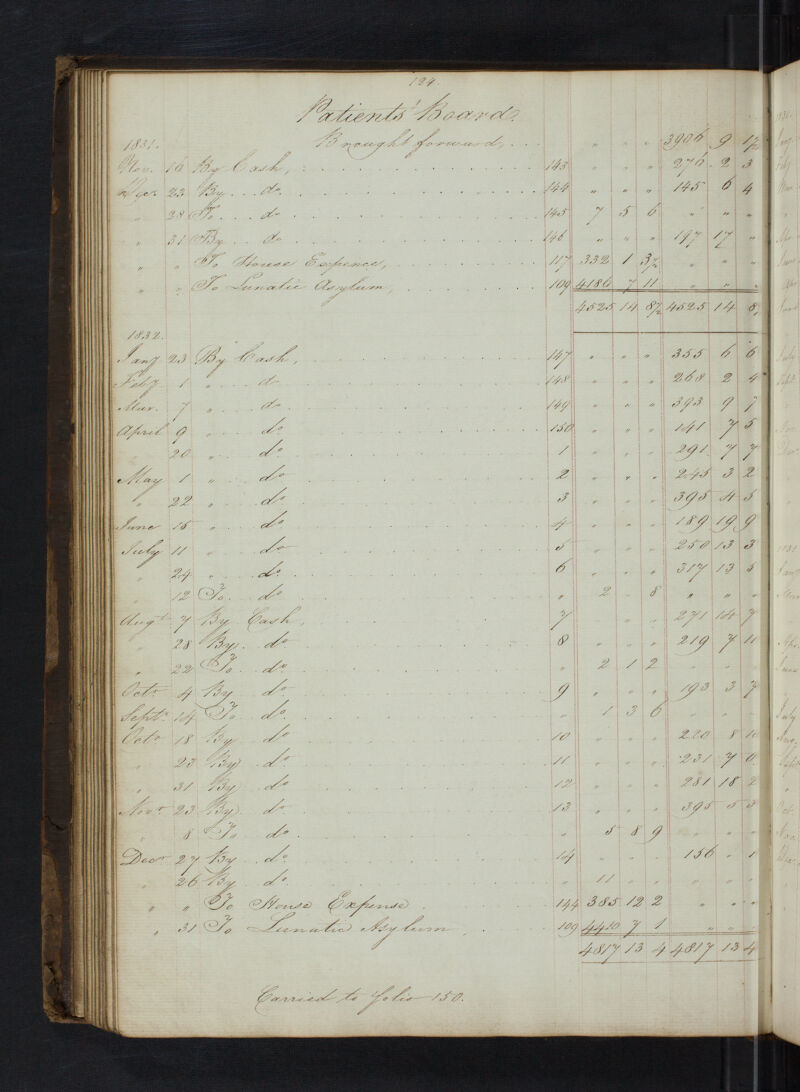 124.
Patients' Board.
Brought forward, " " " 3906 9 1½
1831.
Nov. 16 By Cash, 143 " " " 276 2 3
Decr 23 By do 144 " " " 145 6 4
" 28 To do 145 7 5 6 " " "
" 31 By do 146 " " " 197 17 "
" " To House Expence, 117 332 1 3½ " " "
" " To Lunatic Asylum, 109 4186 7 11 " " "
4525 14 8½ 4525 14 8½
1832.
Jany 23 By Cash, 147 " " " 355 6 6
Feby 1 " do 148 " " " 268 2 4
Mar. 7 " do 149 " " " 393 9 7
April 9 " do 150 " " " 141 7 5
" 20 " do 1 " " " 291 7 7
May 1 " do 2 " " " 245 3 2
" 22 " do 3 " " " 395 4 5
June 15 " do 4 " " " 189 19 9
July 11 " do 5 " " " 250 13 3
" 24 " do 6 " " " 317 13 5
" 12 To do " 2 " 8 " " "
Augt 7 By Cash, 7 " " " 271 14 7
" 28 By do 8 " " " 219 7 11
" 22 To do " 2 1 2 " " "
Octr 4 By do 9 " " " 193 3 7
Septr 14 To do " 1 3 6 " " "
Octr 18 By do 10 " " " 220 8 10
" 23 By do 11 " " " 231 7 0
" 31 By do 12 " " " 281 18 2
Novr 23 By do 13 " " " 395 5 3
" 8 To do " 5 8 9 " " "
Decr 27 By do 14 " " " 156 " 1
" 26 By do " 11 " " " " "
" " To House Expense 144 385 12 2 " " "
" 31 To Lunatic Asylum, 109 4410 7 1 " " "
4817 13 4 4817 13 4
Carried to folio 150.